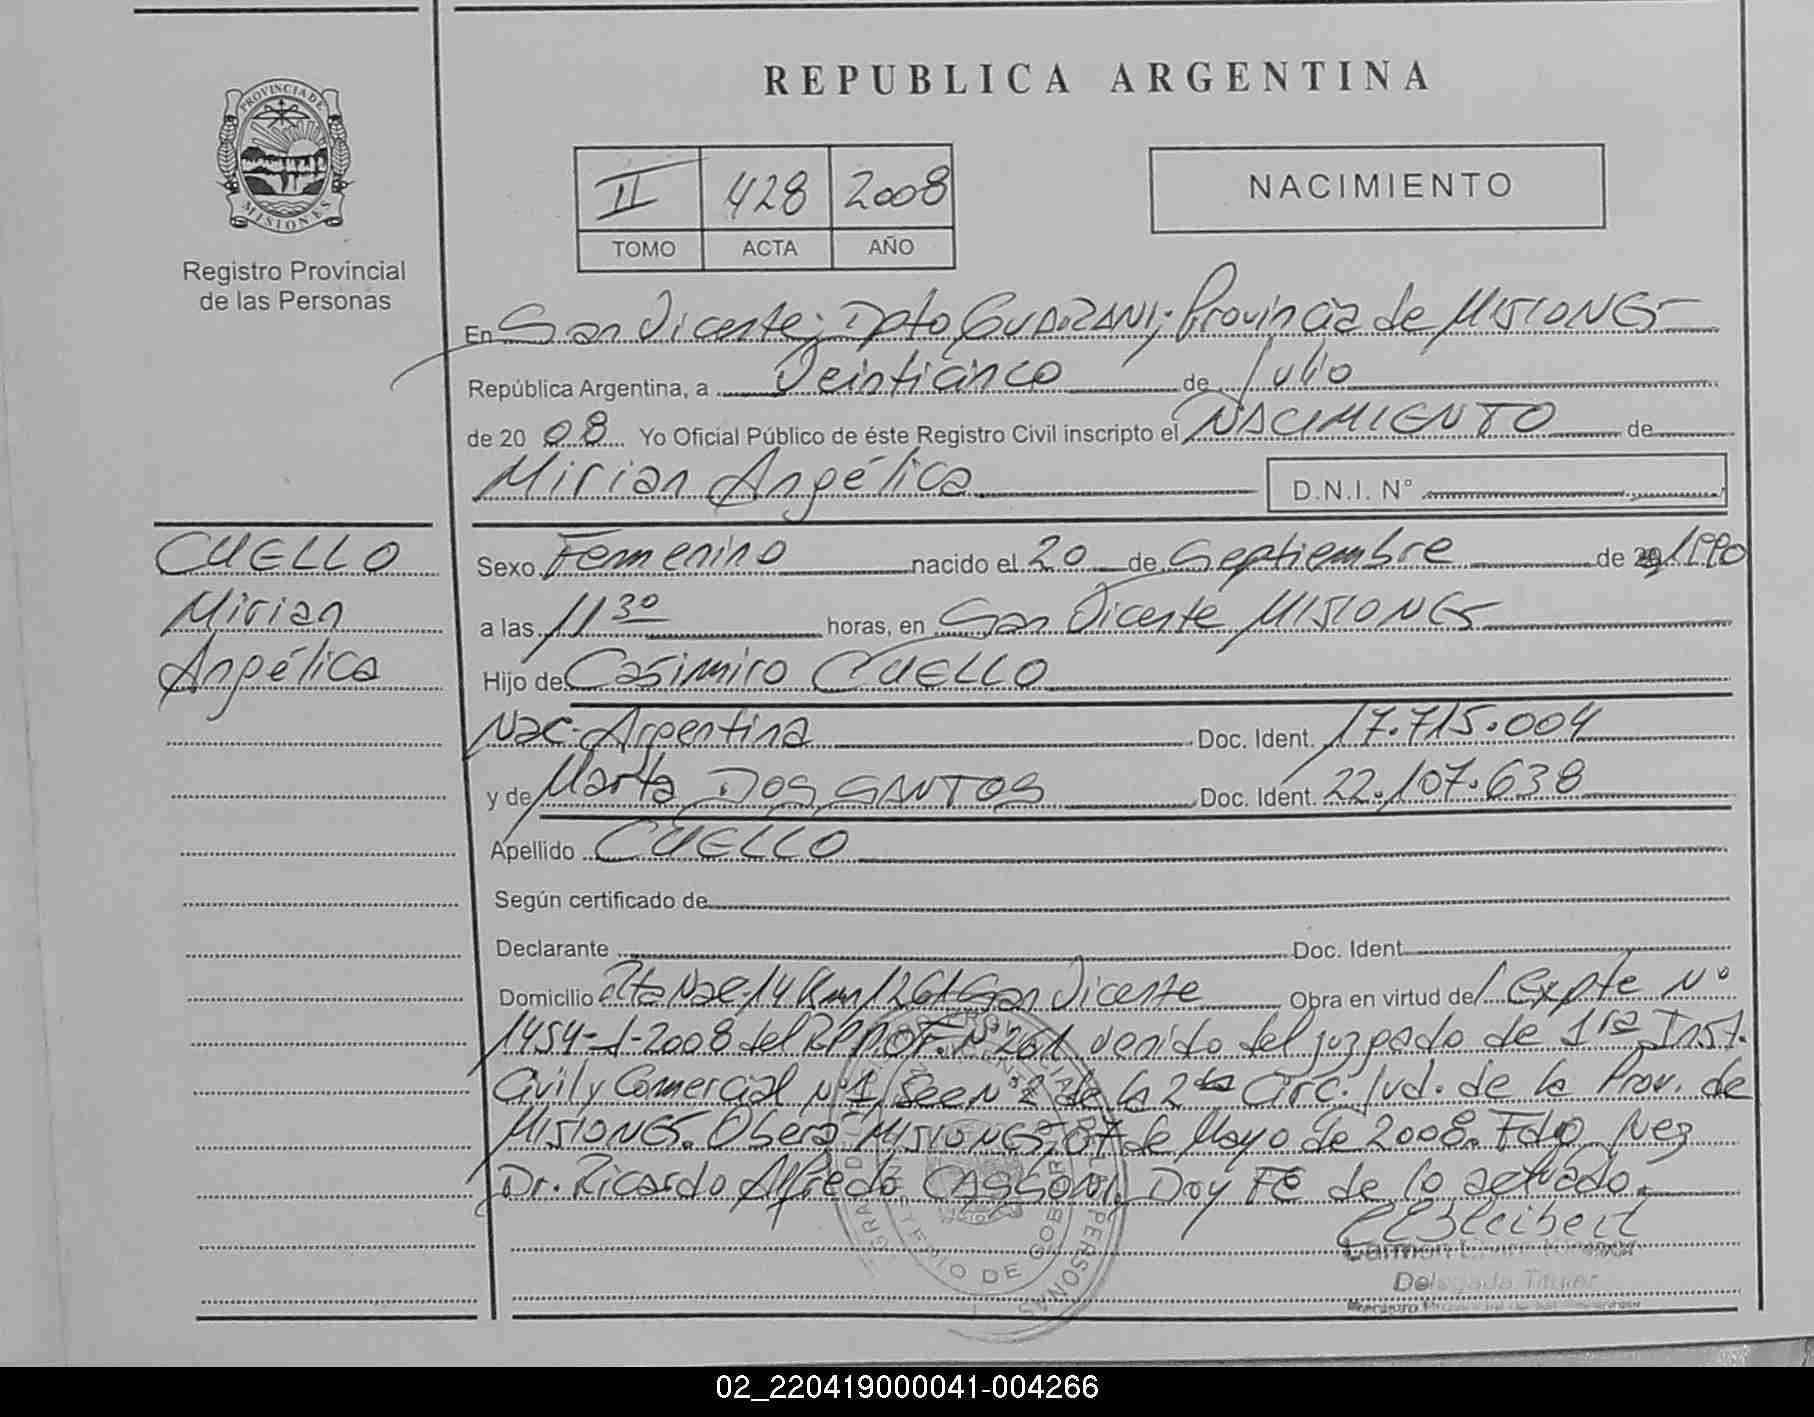 REPUBLICA ARGENTINA
PROVINCIA DE
MISIONES
Registro Provincial
de las Personas
II 428 2008
TOMO ACTA AÑO
NACIMIENTO
En San Vicente; Dpto GUARANI; Provincia de MISIONES
República Argentina, a Veinticinco de Julio
de 20 08 Yo Oficial Público de éste Registro Civil inscripto el NACIMIENTO de
Mirian Angélica D.N.I. N°
CUELLO
Mirian
Angélica
Sexo Femenino nacido el 20 de Septiembre de 1990
a las 11 30 horas, en San Vicente MISIONES
Hijo de Casimiro CUELLO
Nac. Argentina Doc. Ident. 17.715.004
y de Marta DOS SANTOS Doc. Ident. 22.107.638
Apellido CUELLO
Según certificado de
Declarante Doc. Ident.
Domicilio Rta Nac. 14 Km 1261 San Vicente Obra en virtud de Expte N°
1454-1-2008 del RPP OF. N° 261 venido del juzgado de 1ra Inst.
Civil y Comercial N°1 Sec N°2 de la 2da Circ. Jud. de la Prov. de
MISIONES. Oberá MISIONES, 07 de Mayo de 2008. Fdo Juez
Dr. Ricardo Alfredo CASSONI. Doy FE de lo actuado.
Delegada Titular
02_220419000041-004266